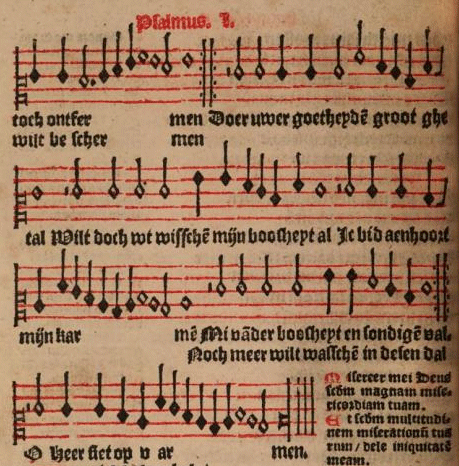 Psalmus. I.
toch ontfer men Doer uwer goetheydē groot ghe
wilt be scher men
tal Wilt doch wt wisschē mijn boosheyt al Ic bid aenhoort
mijn kar mē Mi vāder boosheyt en sondigē val.
Noch meer wilt wasschē in desen dal
O heer siet op v ar men.
Miserere mei Deus
scdm magnam mise-
ricordiam tuam.
Et scdm multitudi-
nem miserationū tua
rum / dele iniquitatē
meam.